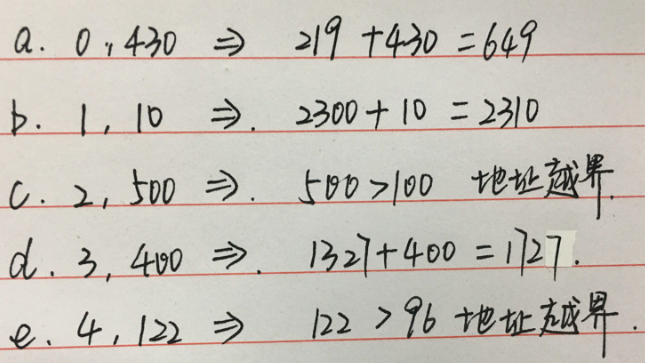 a. 0, 430 ⇒ 219 + 430 = 649
b. 1, 10 ⇒. 2300 + 10 = 2310
c. 2, 500 ⇒. 500 > 100 地址越界.
d. 3, 400 ⇒. 1327 + 400 = 1727.
e. 4, 122 ⇒ 122 > 96 地址越界.